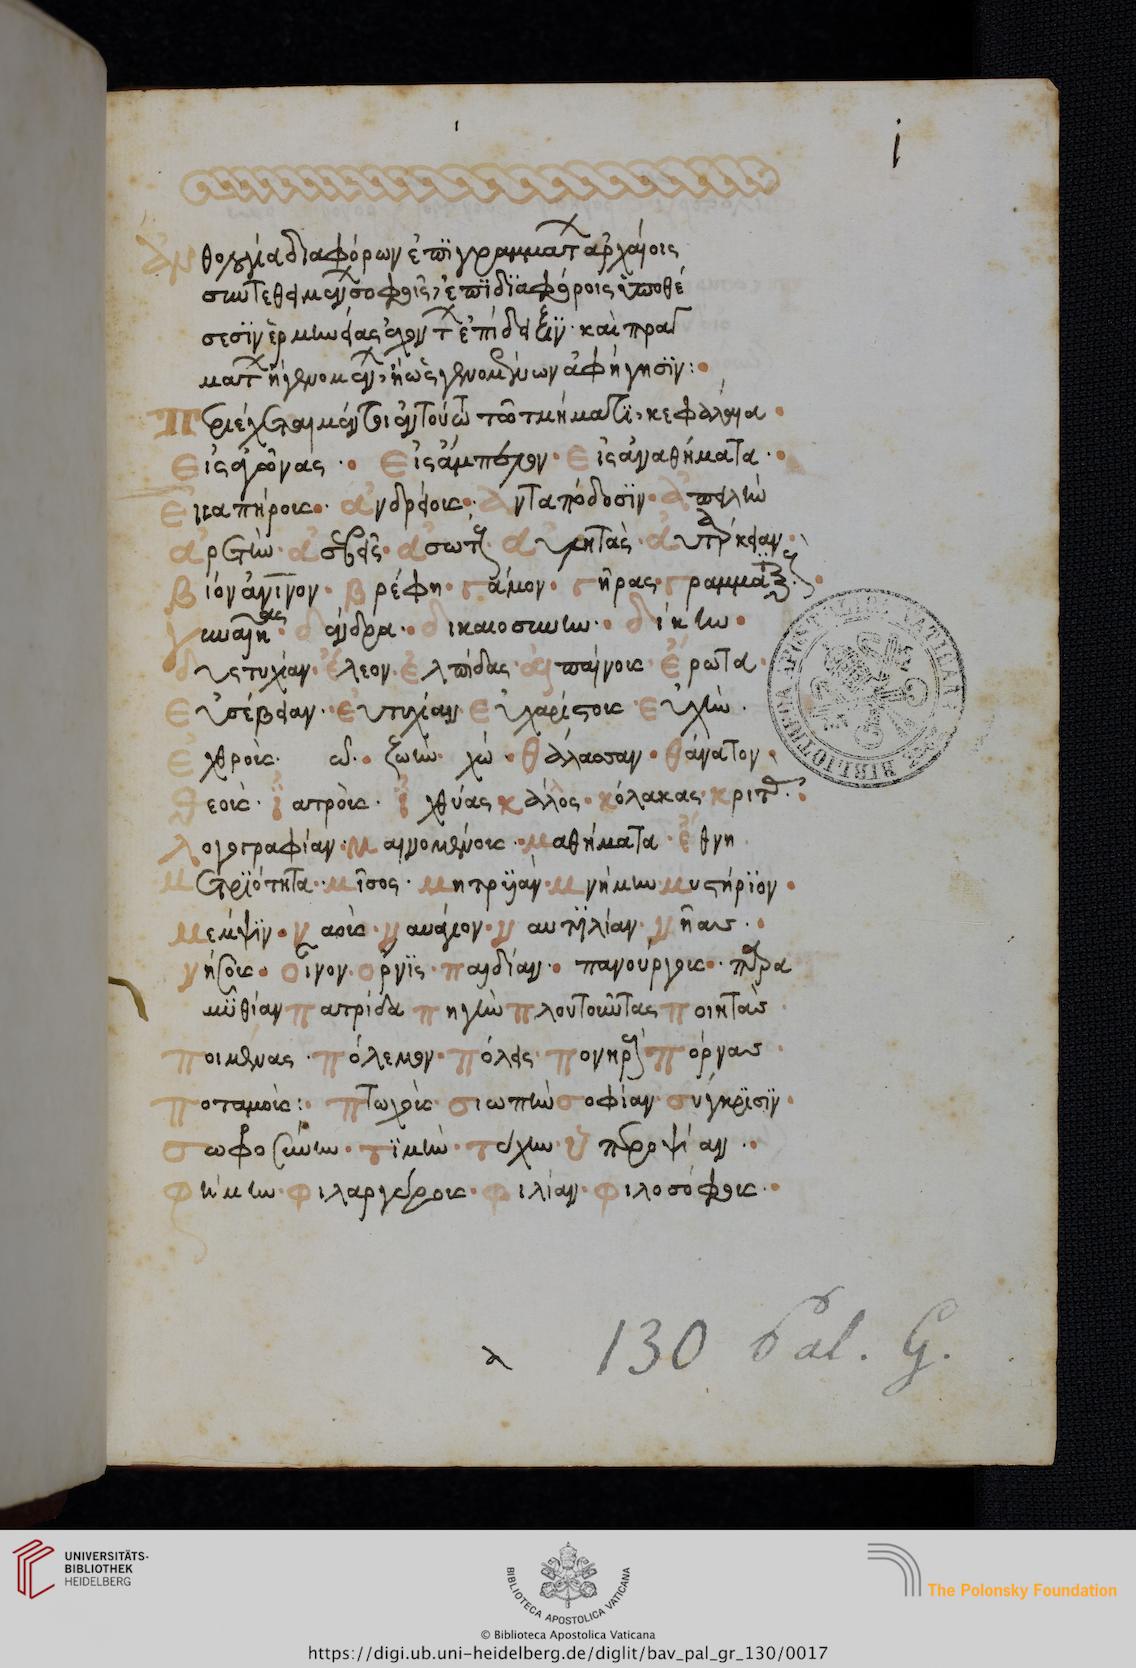 i
Ἀνθολογία διαφόρων ἐπιγραμμάτων ἀρχαίοις
συντεθειμένων σοφοῖς, ἐπὶ διαφόροις ὑποθέ
σεσιν ἑρμηνείας ἐχόντων ἐπίδειξιν· καὶ πραγ
μάτων ἢ γενομένων, ἢ ὡς γενομένων ἀφήγησιν:
Περιέχεται μὲν τι ἐν τούτω τῶ τμήματι, κεφάλαια
Εἰς ἀγῶνας · Εἰς ἄμπελον · Εἰς ἀναθήματα ·
Εἰς ἀναπήροις · ἀνδρείοις · Ἀνταπόδοσιν · Ἀπειλὴ
ἀρετὴν · ἀσεβεῖς · ἀσώτους · αὐλητὰς · αὐτάρκειαν ·
Βίον ἀνθρώπινον · Βρέφη · Γάμον · Γῆρας · γραμματικούς ·
γυναῖκας · ἄνδρα · δικαιοσύνην · δίκην
δυςτυχίαν · ἔλεον · ἐλπίδας · ἐπαίνοις · Ἔρωτα ·
Εὐσέβειαν · Εὐτυχίαν · Εὐχαρίστοις · Εὐχὴν ·
Ἐχθροῖς · ζωὴν · θάλασσαν · θάνατον ·
Θεοῖς · ἰατροῖς · ἰχθύας · κάλλος · κόλακας · κριτὰς ·
λογογραφίαν · Μαινομένοις · μαθήματα · ἔθνη
Μετριότητα · μῖσος · μητρυϊὰν · μνήμην · μυστήριον
Μέμψιν · ναοῖς · ναυάγιον · ναυτιλίαν · νῆας ·
νήσοις · οἶνον · ὄρνις · παιδίαν · πανούργοις · παρα
μυθίαν · πατρίδα · πηγὴν · πλουτοῦντας · ποιητὰς
ποιμένας · πόλεμον · πόλεις · πονηροὺς · πόρνας
ποταμοῖς: πτωχοῖς · σιωπὴν · σοφίαν · σύγκρισιν ·
σωφροσύνην · τιμὴν · τύχην · ὑπεροψίαν ·
φήμην · φιλαργύροις · φιλίαν · φιλοσόφοις ·
α 130 Pal. G.
UNIVERSITÄTS-
BIBLIOTHEK
HEIDELBERG
BIBLIOTECA APOSTOLICA VATICANA
The Polonsky Foundation
© Biblioteca Apostolica Vaticana
https://digi.ub.uni-heidelberg.de/diglit/bav_pal_gr_130/0017